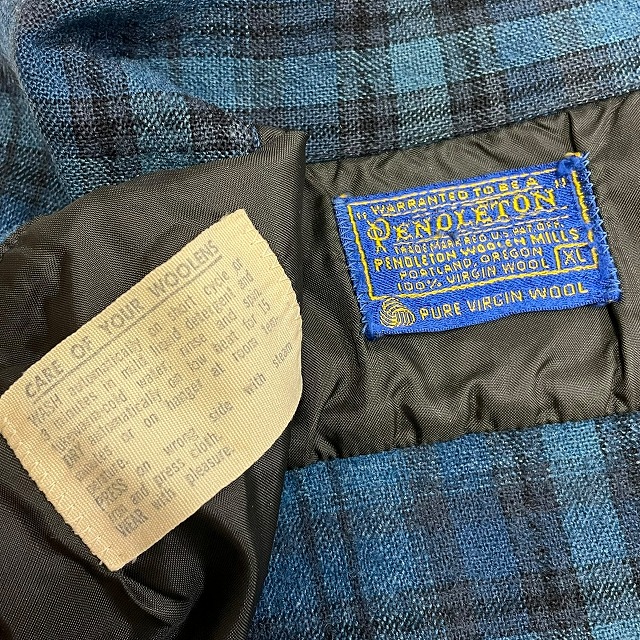 CARE OF YOUR WOOLENS
WASH automatically cycle of
3 minutes in mild detergent and
lukewarm-cold water. Use air spin.
DRY automatically on low heat for 15
minutes or on hanger at room tem-
perature.
PRESS on wrong side with steam
iron and press cloth.
WEAR with pleasure.
"WARRANTED TO BE A"
PENDLETON
TRADE MARK REG. U.S. PAT. OFF.
PENDLETON WOOLEN MILLS
PORTLAND, OREGON
100% VIRGIN WOOL XL
PURE VIRGIN WOOL